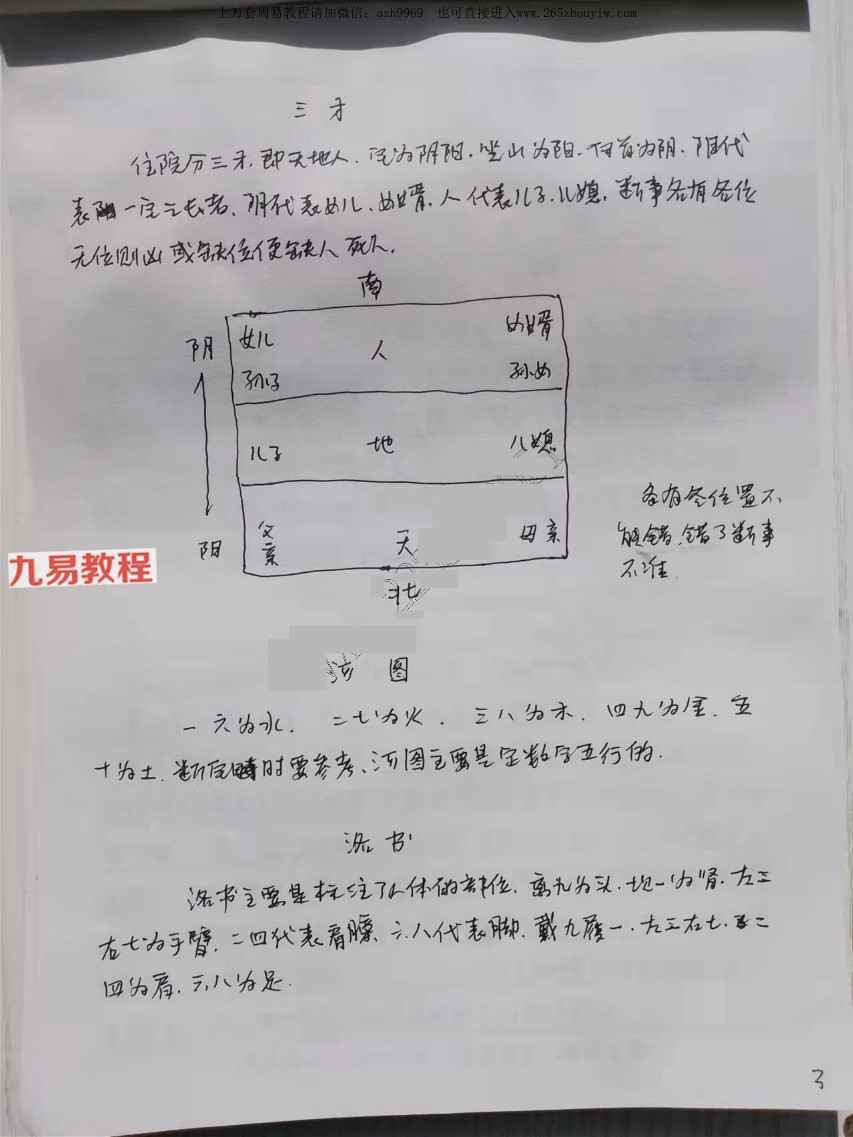 上万套周易教程请加微信：azh9969　也可直接进入www.265zhouyiw.com
三才
住院分三才，即天地人，定为阴阳，坐山为阳，向首为阴，阳代
表一宅之长者，阴代表女儿、女婿，人代表儿子、儿媳，断事各有各位
无位则凶或缺位便缺人死人。
南
阴
女儿
人
女婿
孙子
孙女
儿子
地
儿媳
各有各位置不
能错，错了断事
不准
阳
父亲
天
母亲
九易教程
北
河图
一六为水，二七为火，三八为木，四九为金，五
十为土，断宅时要参考，河图主要是定数字五行的。
洛书
洛书主要是标注了人体的部位，离九为头，坎一为肾，左三
右七为手臂，二四代表肩膀，六八代表脚，戴九履一，左三右七，二
四为肩，六八为足。
3